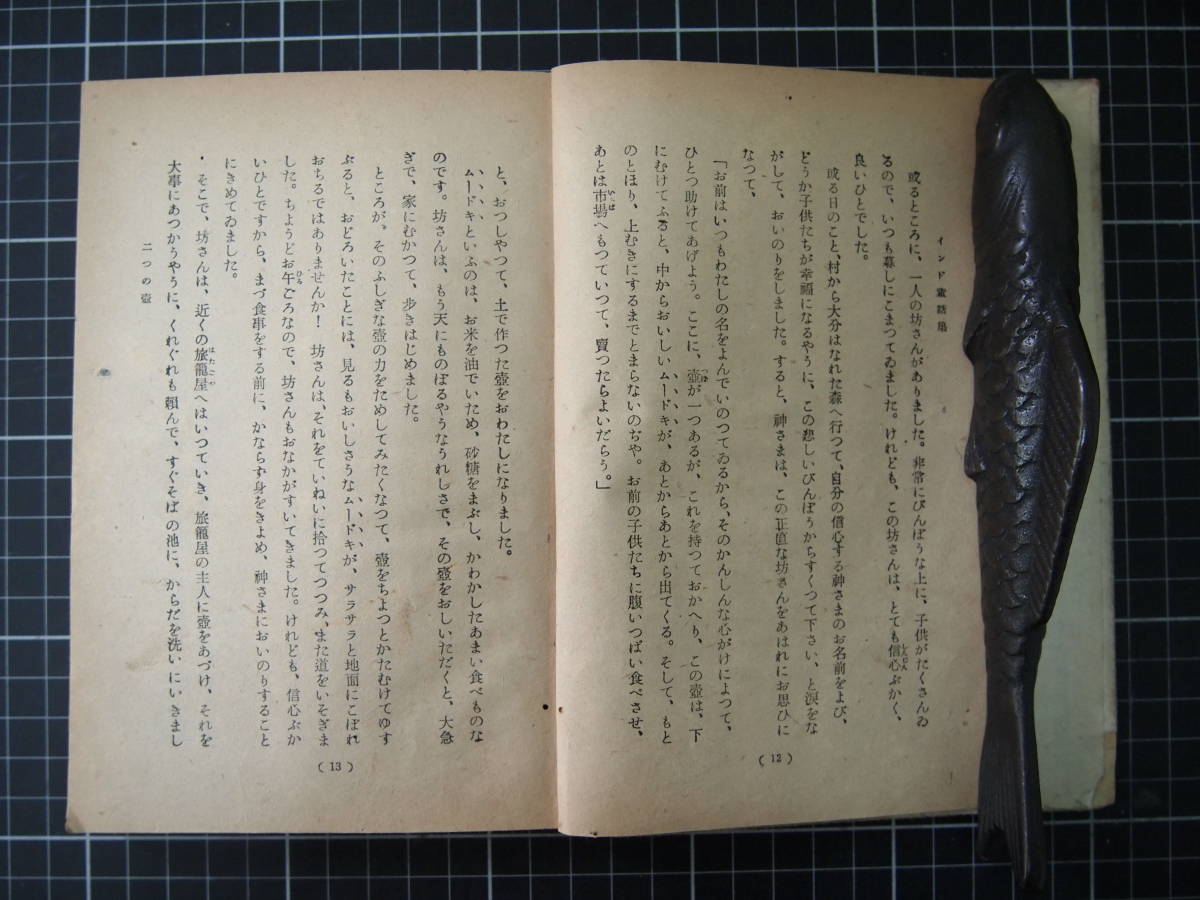 インド童話集
或るところに、一人の坊さんがありました。非常にびんぼうな上に、子供がたくさんゐ
るので、いつも暮しにこまつてゐました。けれども、この坊さんは、とても信心ぶかく、
良いひとでした。
或る日のこと、村から大分はなれた森へ行つて、自分の信心する神さまのお名前をよび、
どうか子供たちが幸福になるやうに、この悲しいびんぼうからすくつて下さい、と涙をな
がして、おいのりをしました。すると、神さまは、この正直な坊さんをあはれにお思ひに
なつて、
「お前はいつもわたしの名をよんでいのつてゐるから、そのかんしんな心がけによつて、
ひとつ助けてあげよう。ここに、壺が一つあるが、これを持つておかへり、この壺は、下
にむけてふると、中からおいしいムードキが、あとからあとから出てくる。そして、もと
のとほり、上むきにするまでとまらないのぢや。お前の子供たちに腹いつぱい食べさせ、
あとは市場へもつていつて、賣つたらよいだらう。」
(12)
と、おつしやつて、土で作つた壺をおわたしになりました。
ムードキといふのは、お米を油でいため、砂糖をまぶし、かわかしたあまい食べものな
のです。坊さんは、もう天にものぼるやうなうれしさで、その壺をおしいただくと、大急
ぎで、家にむかつて、歩きはじめました。
ところが、そのふしぎな壺の力をためしてみたくなつて、壺をちよつとかたむけてゆす
ぶると、おどろいたことには、見るもおいしさうなムードキが、サラサラと地面にこぼれ
おちるではありませんか！ 坊さんは、それをていねいに拾つてつつみ、また道をいそぎま
した。ちょうどお午ごろなので、坊さんもおなかがすいてきました。けれども、信心ぶか
いひとですから、まづ食事をする前に、かならず身をきよめ、神さまにおいのりすること
にきめてゐました。
そこで、坊さんは、近くの旅籠屋へはいつていき、旅籠屋の主人に壺をあづけ、それを
大事にあつかうやうに、くれぐれも頼んで、すぐそばの池に、からだを洗いにいきまし
二つの壺
(13)